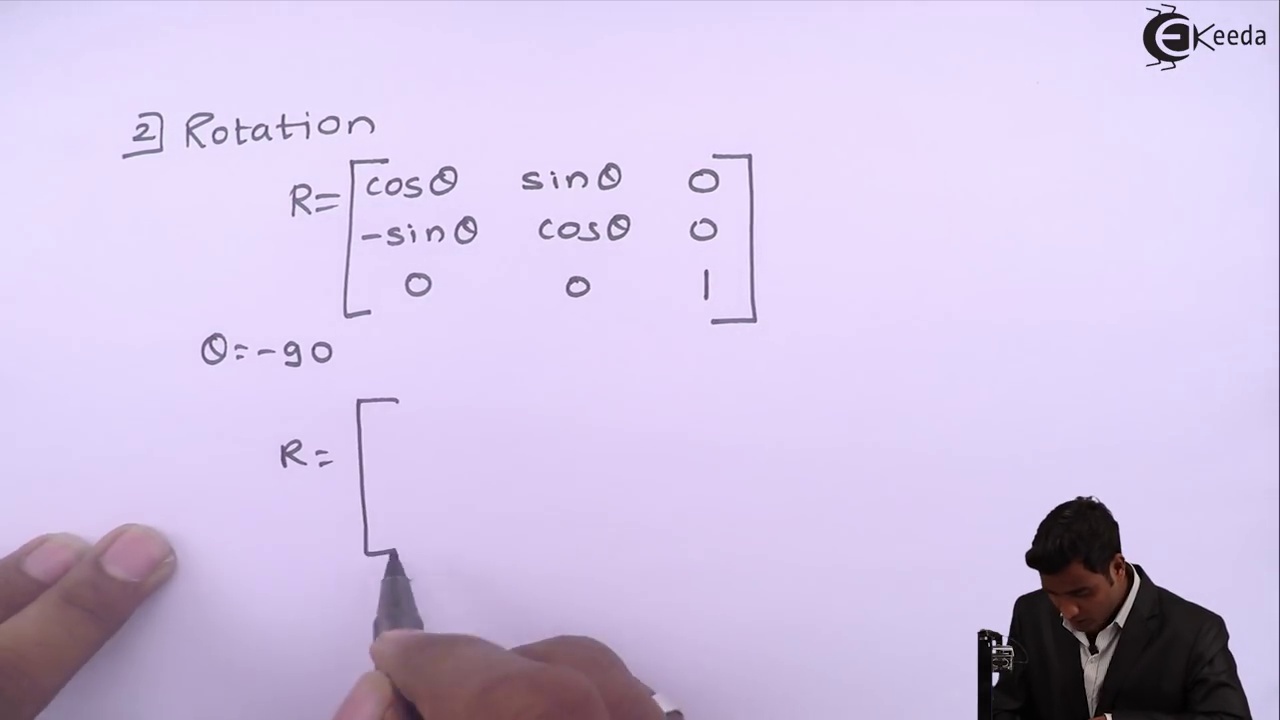 EKeeda
2 Rotation
R= cosθ sinθ 0
-sinθ cosθ 0
0 0 1
θ=-90
R=